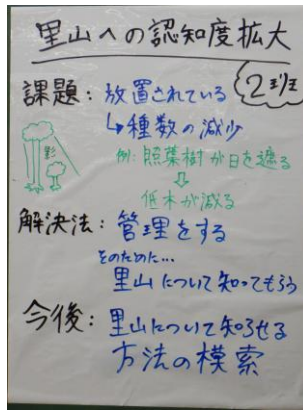 里山への認知度拡大
2班
課題：放置されている
↳種数の減少
影
例：照葉樹が日を遮る
⇩
低木が減る
解決法：管理をする
そのために…
里山について知ってもらう
今後：里山について知らせる
方法の模索